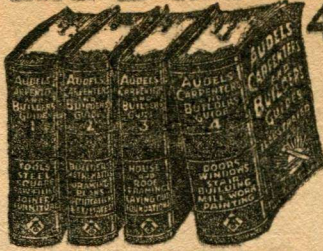 AUDELS
CARPENTERS
AND
BUILDERS
GUIDE
1
TOOLS
STEEL
SQUARE
JOINERY
FURNITURE
AUDELS
CARPENTERS
AND
BUILDERS
GUIDE
2
AUDELS
CARPENTERS
AND
BUILDERS
GUIDE
3
HOUSE
AND
ROOF
FRAMING
LAYING OUT
FOUNDATION
AUDELS
CARPENTERS
AND
BUILDERS
GUIDE
4
DOORS
WINDOWS
STAIR
BUILDING
MILL WORK
PAINTING
AUDELS
CARPENTERS
AND
BUILDERS
GUIDES
ILLUSTRATED